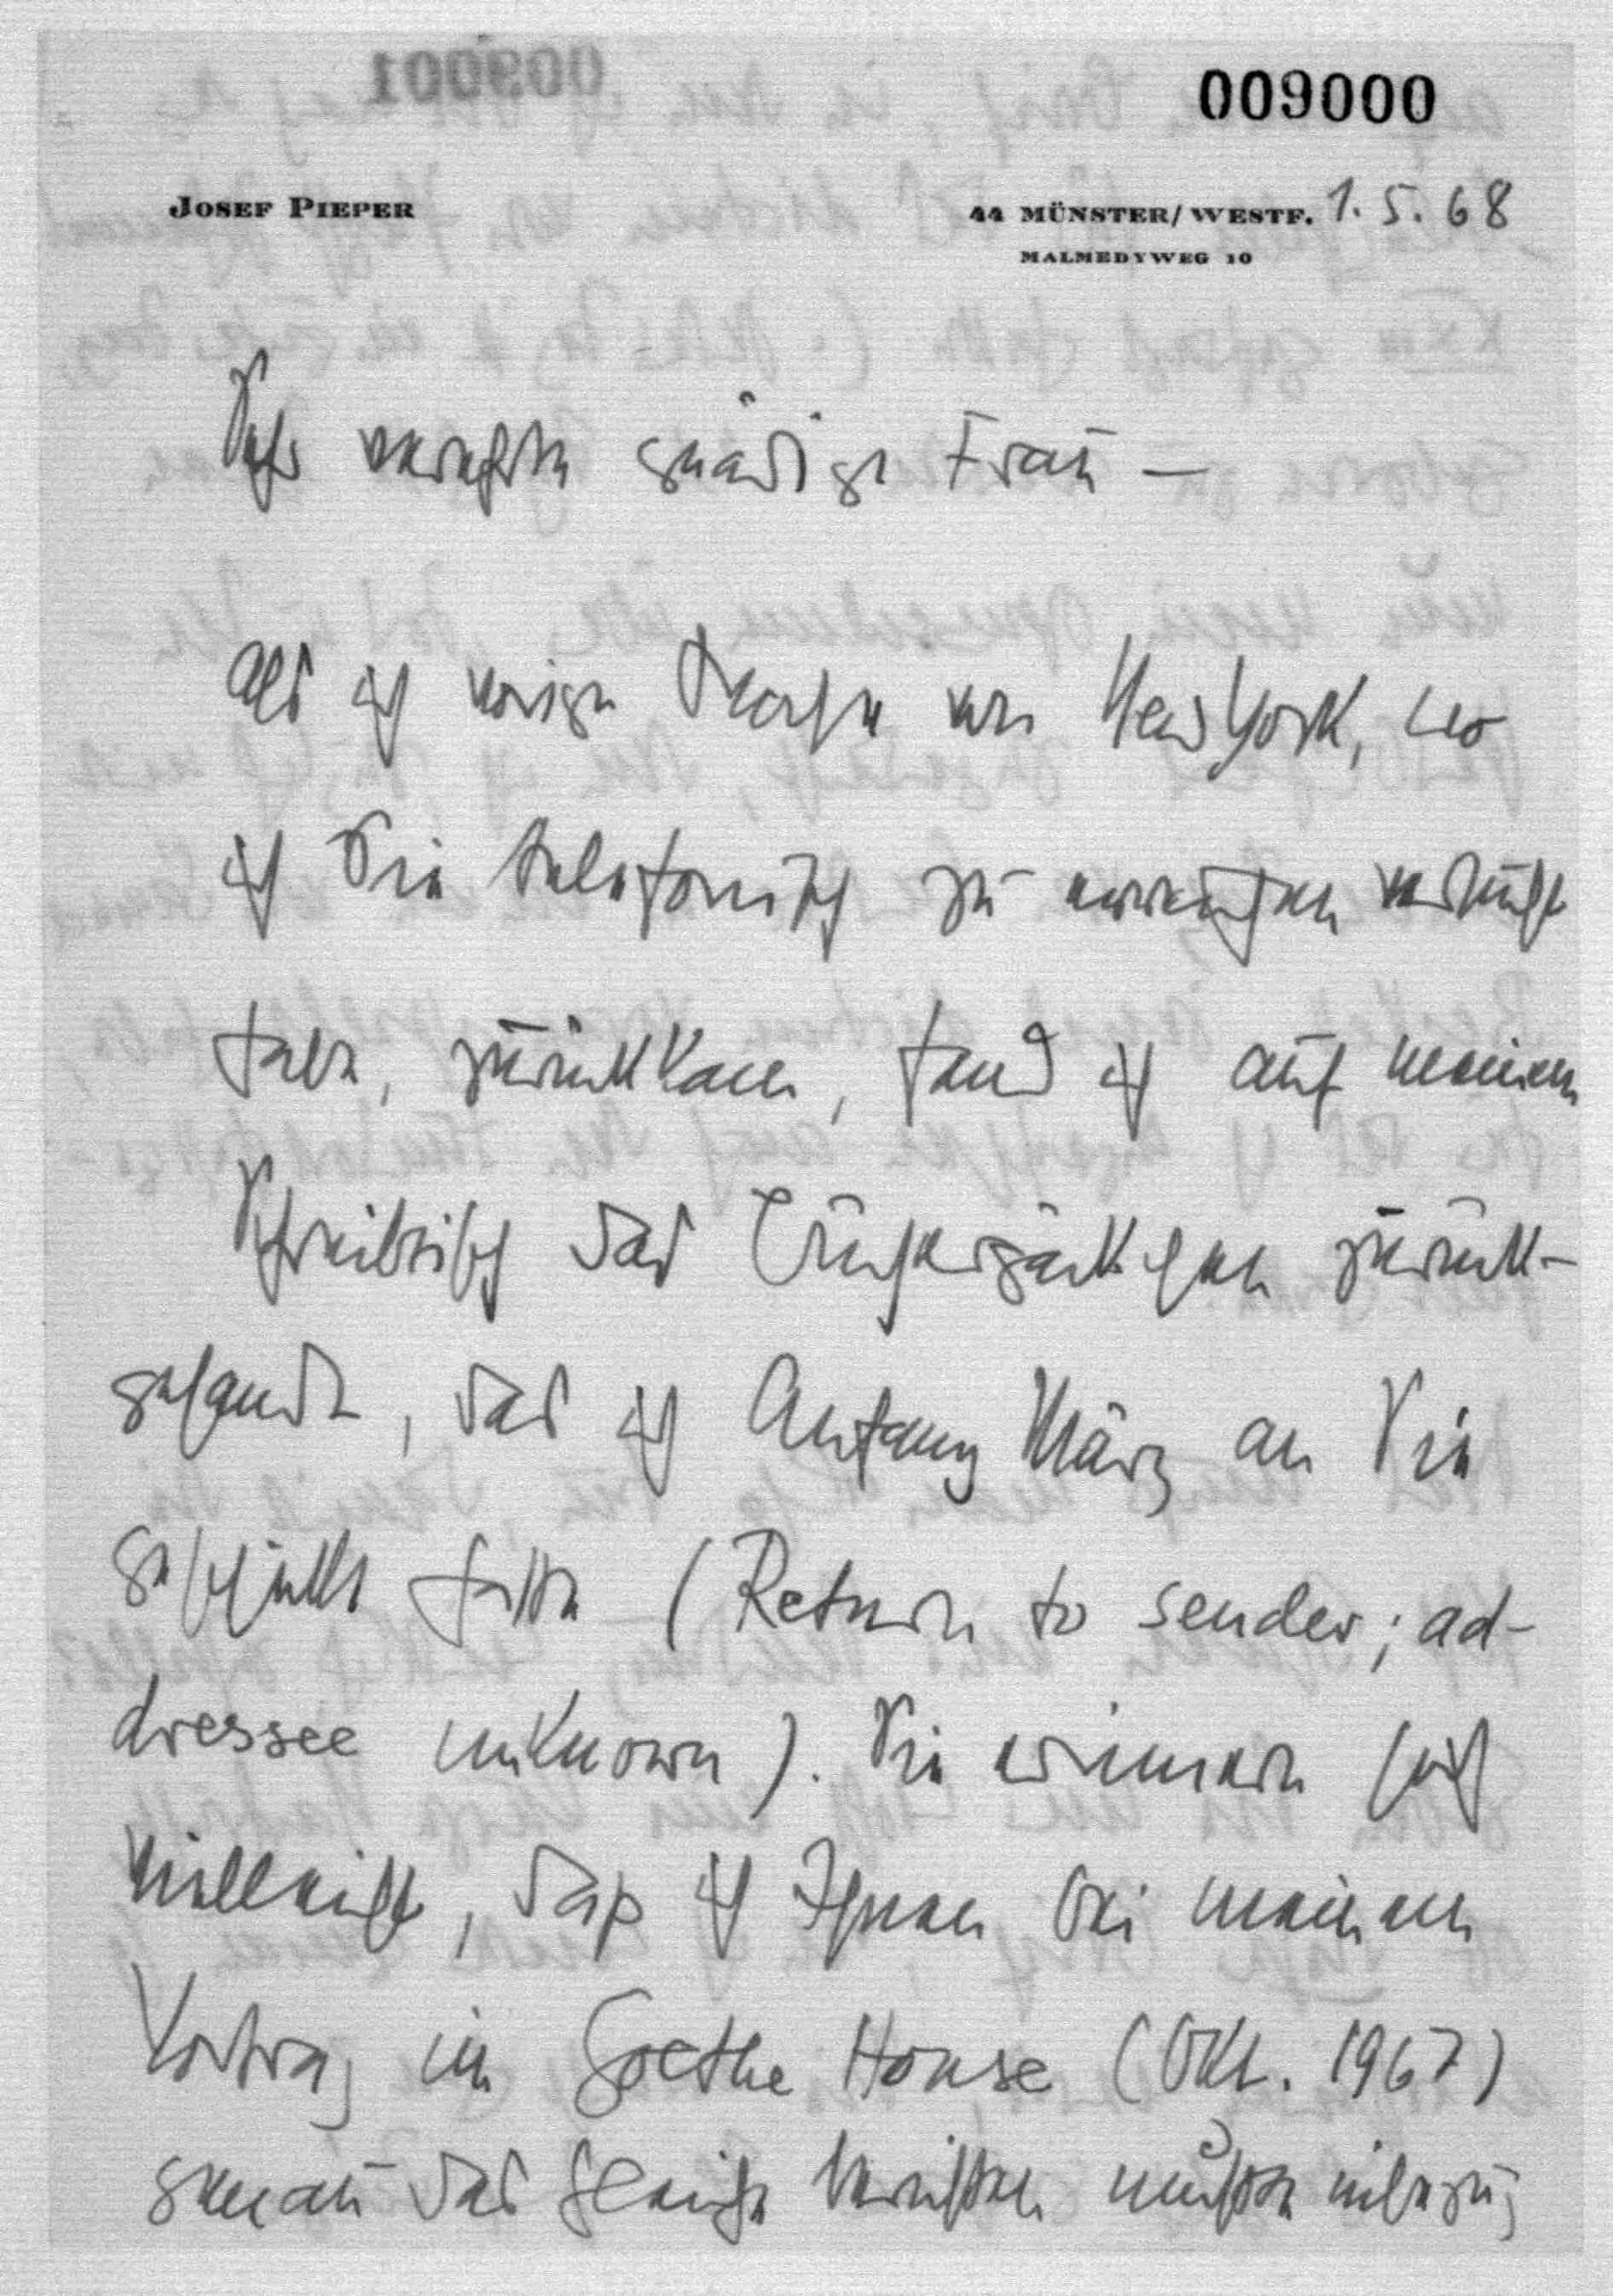 009000
JOSEF PIEPER
44 MÜNSTER/WESTF. 1. 5. 68
MALMEDYWEG 10
Sehr verehrte gnädige Frau —
als ich vorige Woche von New York, wo
ich Sie telefonisch zu erreichen versucht
habe, zurückkam, fand ich auf meinem
Schreibtisch das Bücherpäckchen zurück-
gesandt, das ich Anfang März an Sie
geschickt hatte (Return to sender; ad-
dressee unknown). Sie erinnern sich
vielleicht, daß ich Ihnen bei meinem
Vortrag im Goethe House (Okt. 1967)
genau das gleiche berichten mußte